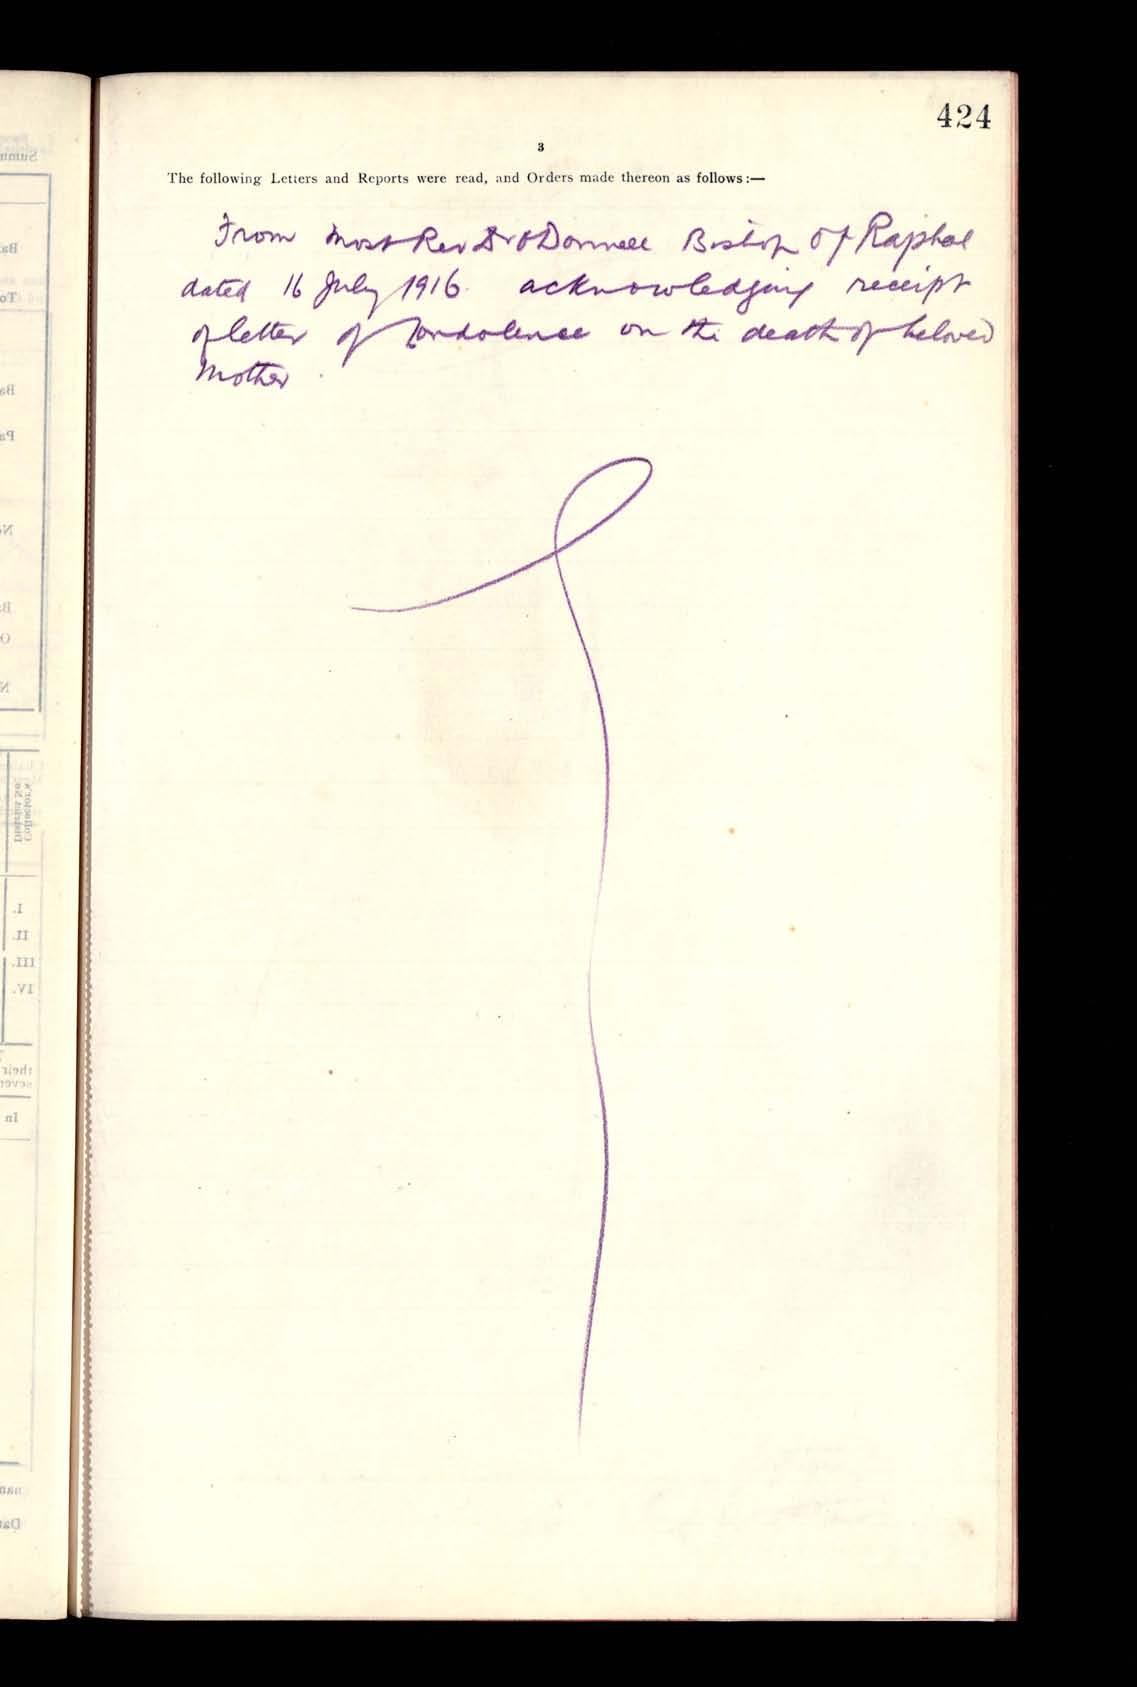 424
3
The following Letters and Reports were read, and Orders made thereon as follows:—
From Most Rev Dr O Donnell Bishop of Raphoe
dated 16 July 1916 acknowledging receipt
of letter of Condolence on the death of beloved
Mother.